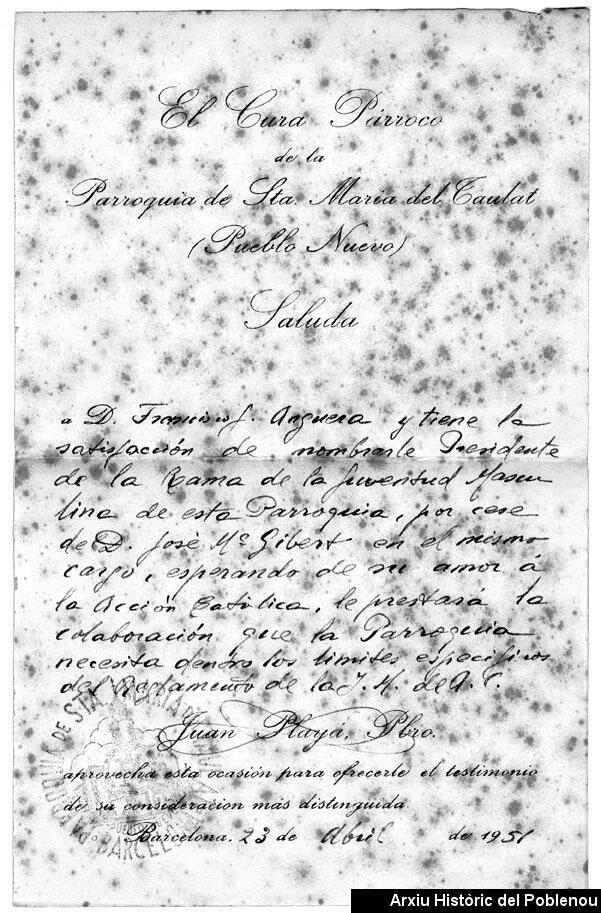 El Cura Párroco
de la
Parroquia de Sta. Maria del Taulat
(Pueblo Nuevo)
Saluda
a D. Francisco J. Anguera y tiene la
satisfacción de nombrarle Presidente
de la Rama de la Juventud Mascu
lina de esta Parroquia, por cese
de D. José Mª Gibert en el mismo
cargo, esperando de su amor á
la Acción Católica, le prestará la
colaboración que la Parroquia
necesita dentro los limites especificos
del Reglamento de la J. M. de A. C.
Juan Playá, Pbro.
aprovecha esta ocasión para ofrecerle el testimonio
de su consideracion más distinguida.
Barcelona, 23 de Abril de 1951
DE STA. MARIA
BARCEL
Arxiu Històric del Poblenou